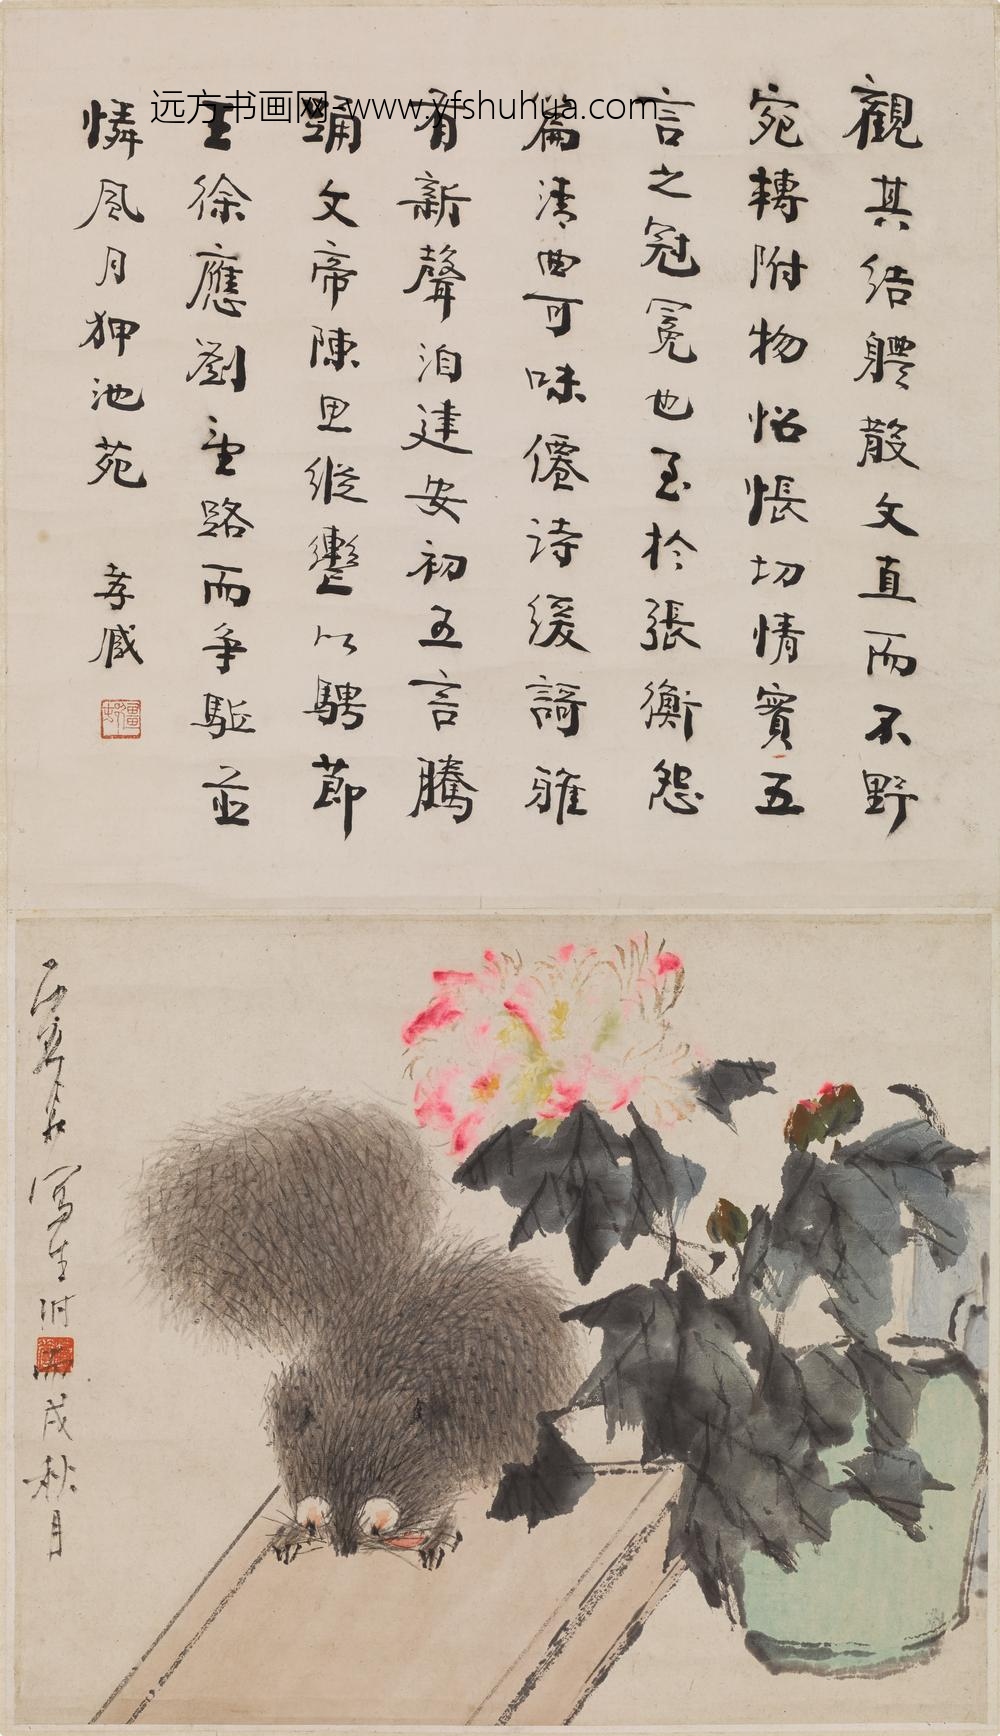 远方书画网-www.yfshuhua.com
觀其结體散文直而不野
宛轉附物怊悵切情實五
言之冠冕也至於張衡怨
篇清曲可味僊诗缓謌雅
有新聲洎建安初五言騰
踊文帝陳思縱轡以騁節
王徐應劉望路而争驅並
憐風月狎池苑
孝臧
寫生时
戌秋月